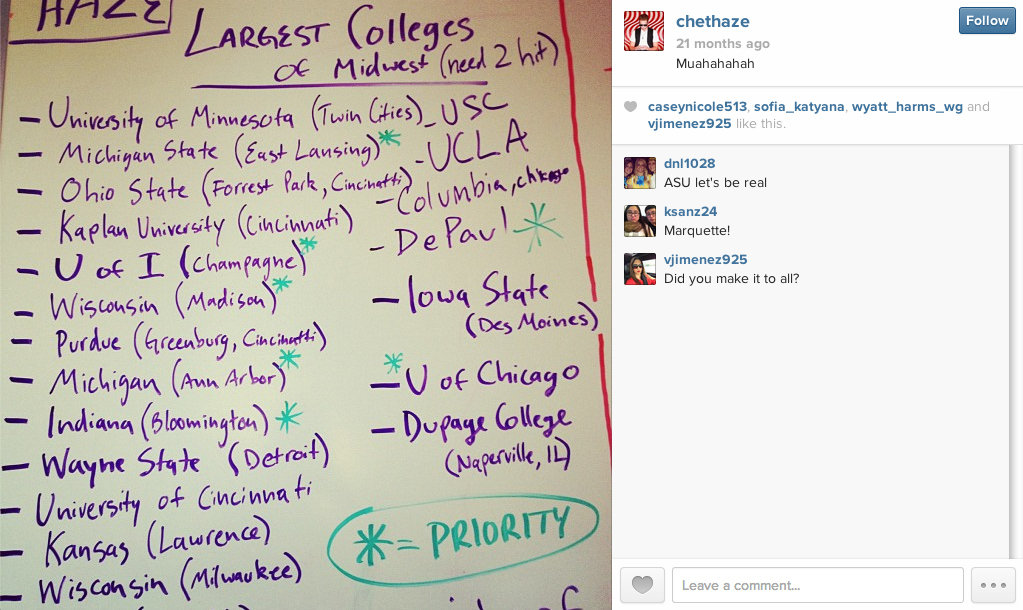 HAZE
LARGEST Colleges
of Midwest (need 2 hit)
– University of Minnesota (Twin Cities)
– Michigan State (East Lansing)*
– Ohio State (Forrest Park, Cincinatti)
– Kaplan University (Cincinnati)
– U of I (Champagne)*
– Wisconsin (Madison)*
– Purdue (Greenburg, Cincinatti)
– Michigan (Ann Arbor)*
– Indiana (Bloomington)*
– Wayne State (Detroit)
– University of Cincinnati
– Kansas (Lawrence)
– Wisconsin (Milwaukee)
– USC
– UCLA
– Columbia, chicago
– DePaul *
– Iowa State
(Des Moines)
*
– U of Chicago
– Dupage College
(Naperville, IL)
* = PRIORITY
chethaze
Follow
21 months ago
Muahahahah
caseynicole513, sofia_katyana, wyatt_harms_wg and
vjimenez925 like this.
dnl1028
ASU let's be real
ksanz24
Marquette!
vjimenez925
Did you make it to all?
Leave a comment...